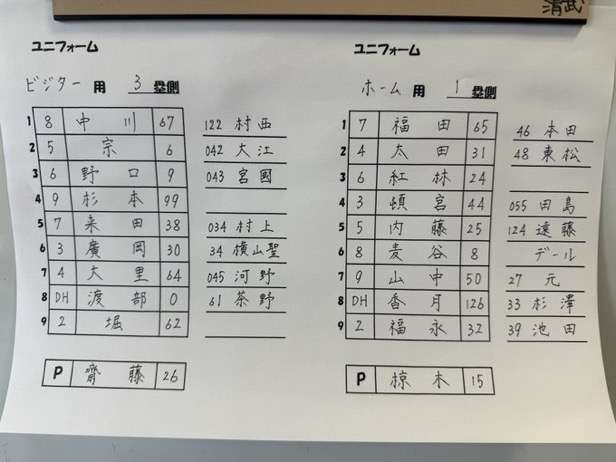 清武
ユニフォーム
ビジター 用 3 塁側
1 8 中川 67
2 5 宗 6
3 6 野口 9
4 9 杉本 99
5 7 来田 38
6 3 廣岡 30
7 4 大里 64
8 DH 渡部 0
9 2 堀 62
P 齋藤 26
122 村西
042 大江
043 宮國
034 村上
34 横山聖
045 河野
61 茶野
ユニフォーム
ホーム 用 1 塁側
1 7 福田 65
2 4 太田 31
3 6 紅林 24
4 3 頓宮 44
5 5 内藤 25
6 8 麦谷 8
7 9 山中 50
8 DH 香月 126
9 2 福永 32
P 椋木 15
46 本田
48 東松
055 田島
124 遠藤
デール
27 元
33 杉澤
39 池田